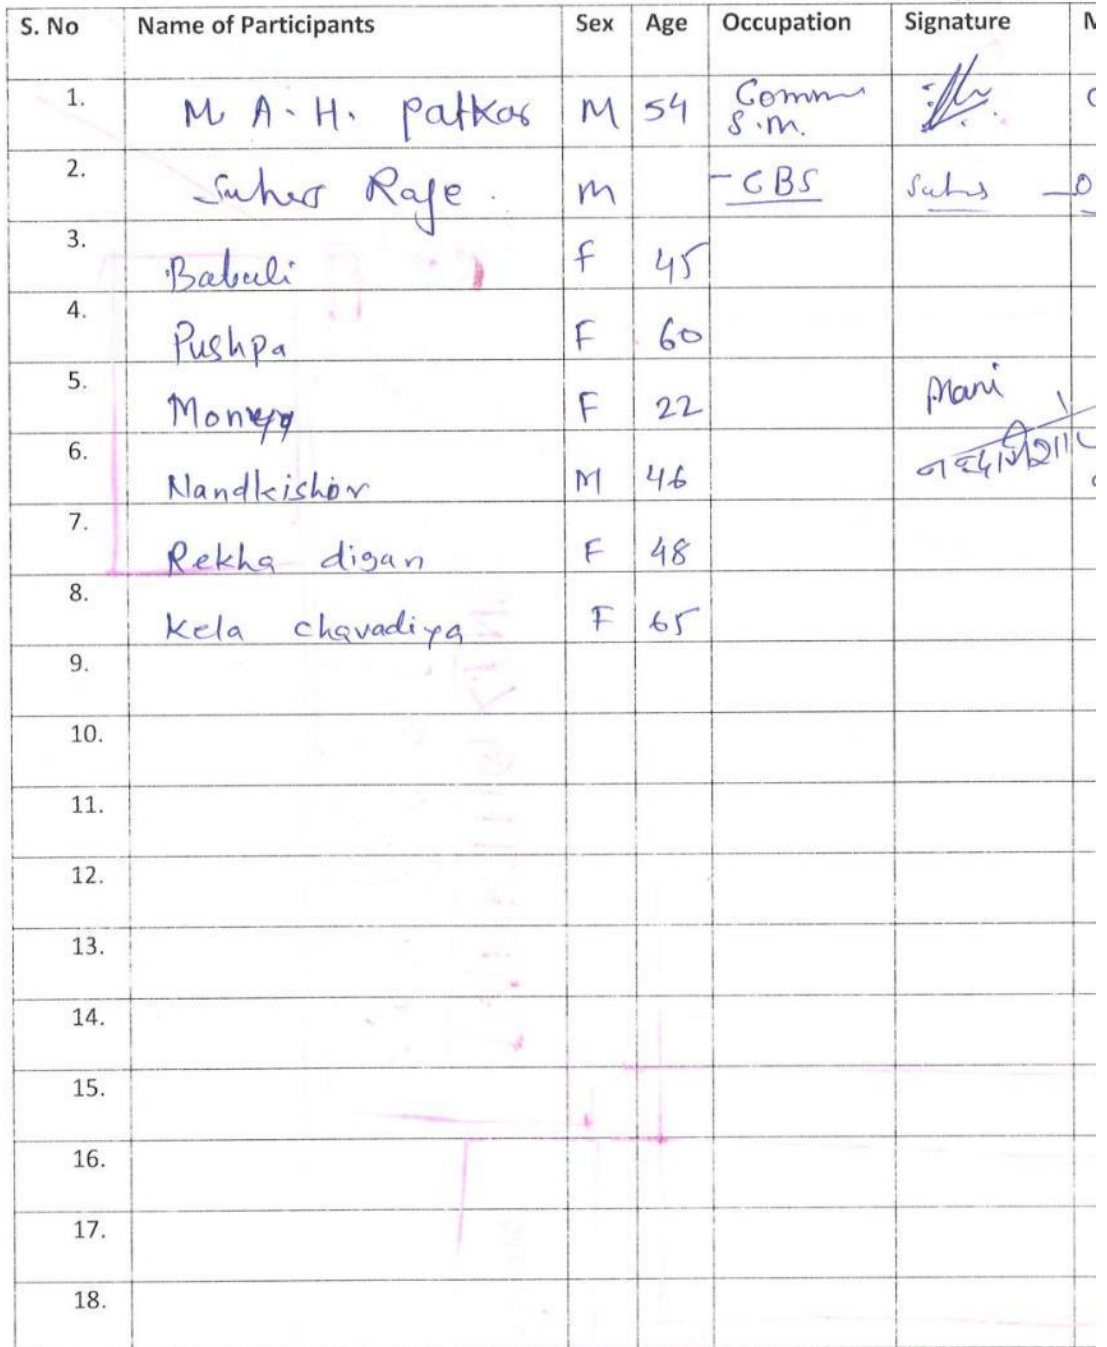 S. No Name of Participants Sex Age Occupation Signature M
1. M. A. H. Patkar M 54 Comm
S.M.
2. Suhas Raje. M - CBS Suhas
3. Babuli F 45
4. Pushpa F 60
5. F 22 Mani
6. Nandkishor M 46
7. Rekha digan F 48
8. Kela chavadiya F 65
9.
10.
11.
12.
13.
14.
15.
16.
17.
18.